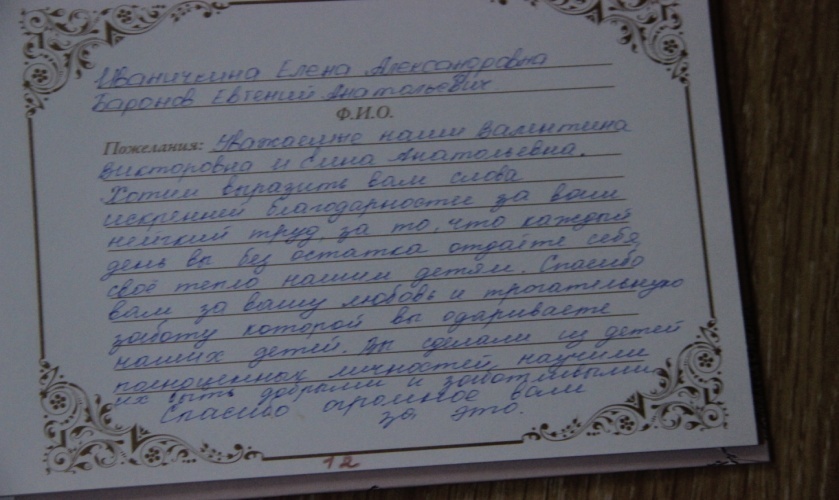 Иваничкина Елена Александровна
Баронов Евгений Анатольевич
Ф.И.О.
Пожелания: Уважаемые наши Валентина
Викторовна и Елена Анатольевна.
Хотим выразить вам слова
искренней благодарности за ваш
нелёгкий труд, за то, что каждый
день вы без остатка отдаёте себя,
своё тепло нашим детям. Спасибо
вам за вашу любовь и трогательную
заботу которой вы одариваете
наших детей. Вы сделали из детей
полноценных личностей, научили
их быть добрыми и заботливыми
Спасибо огромное вам
за это.
12